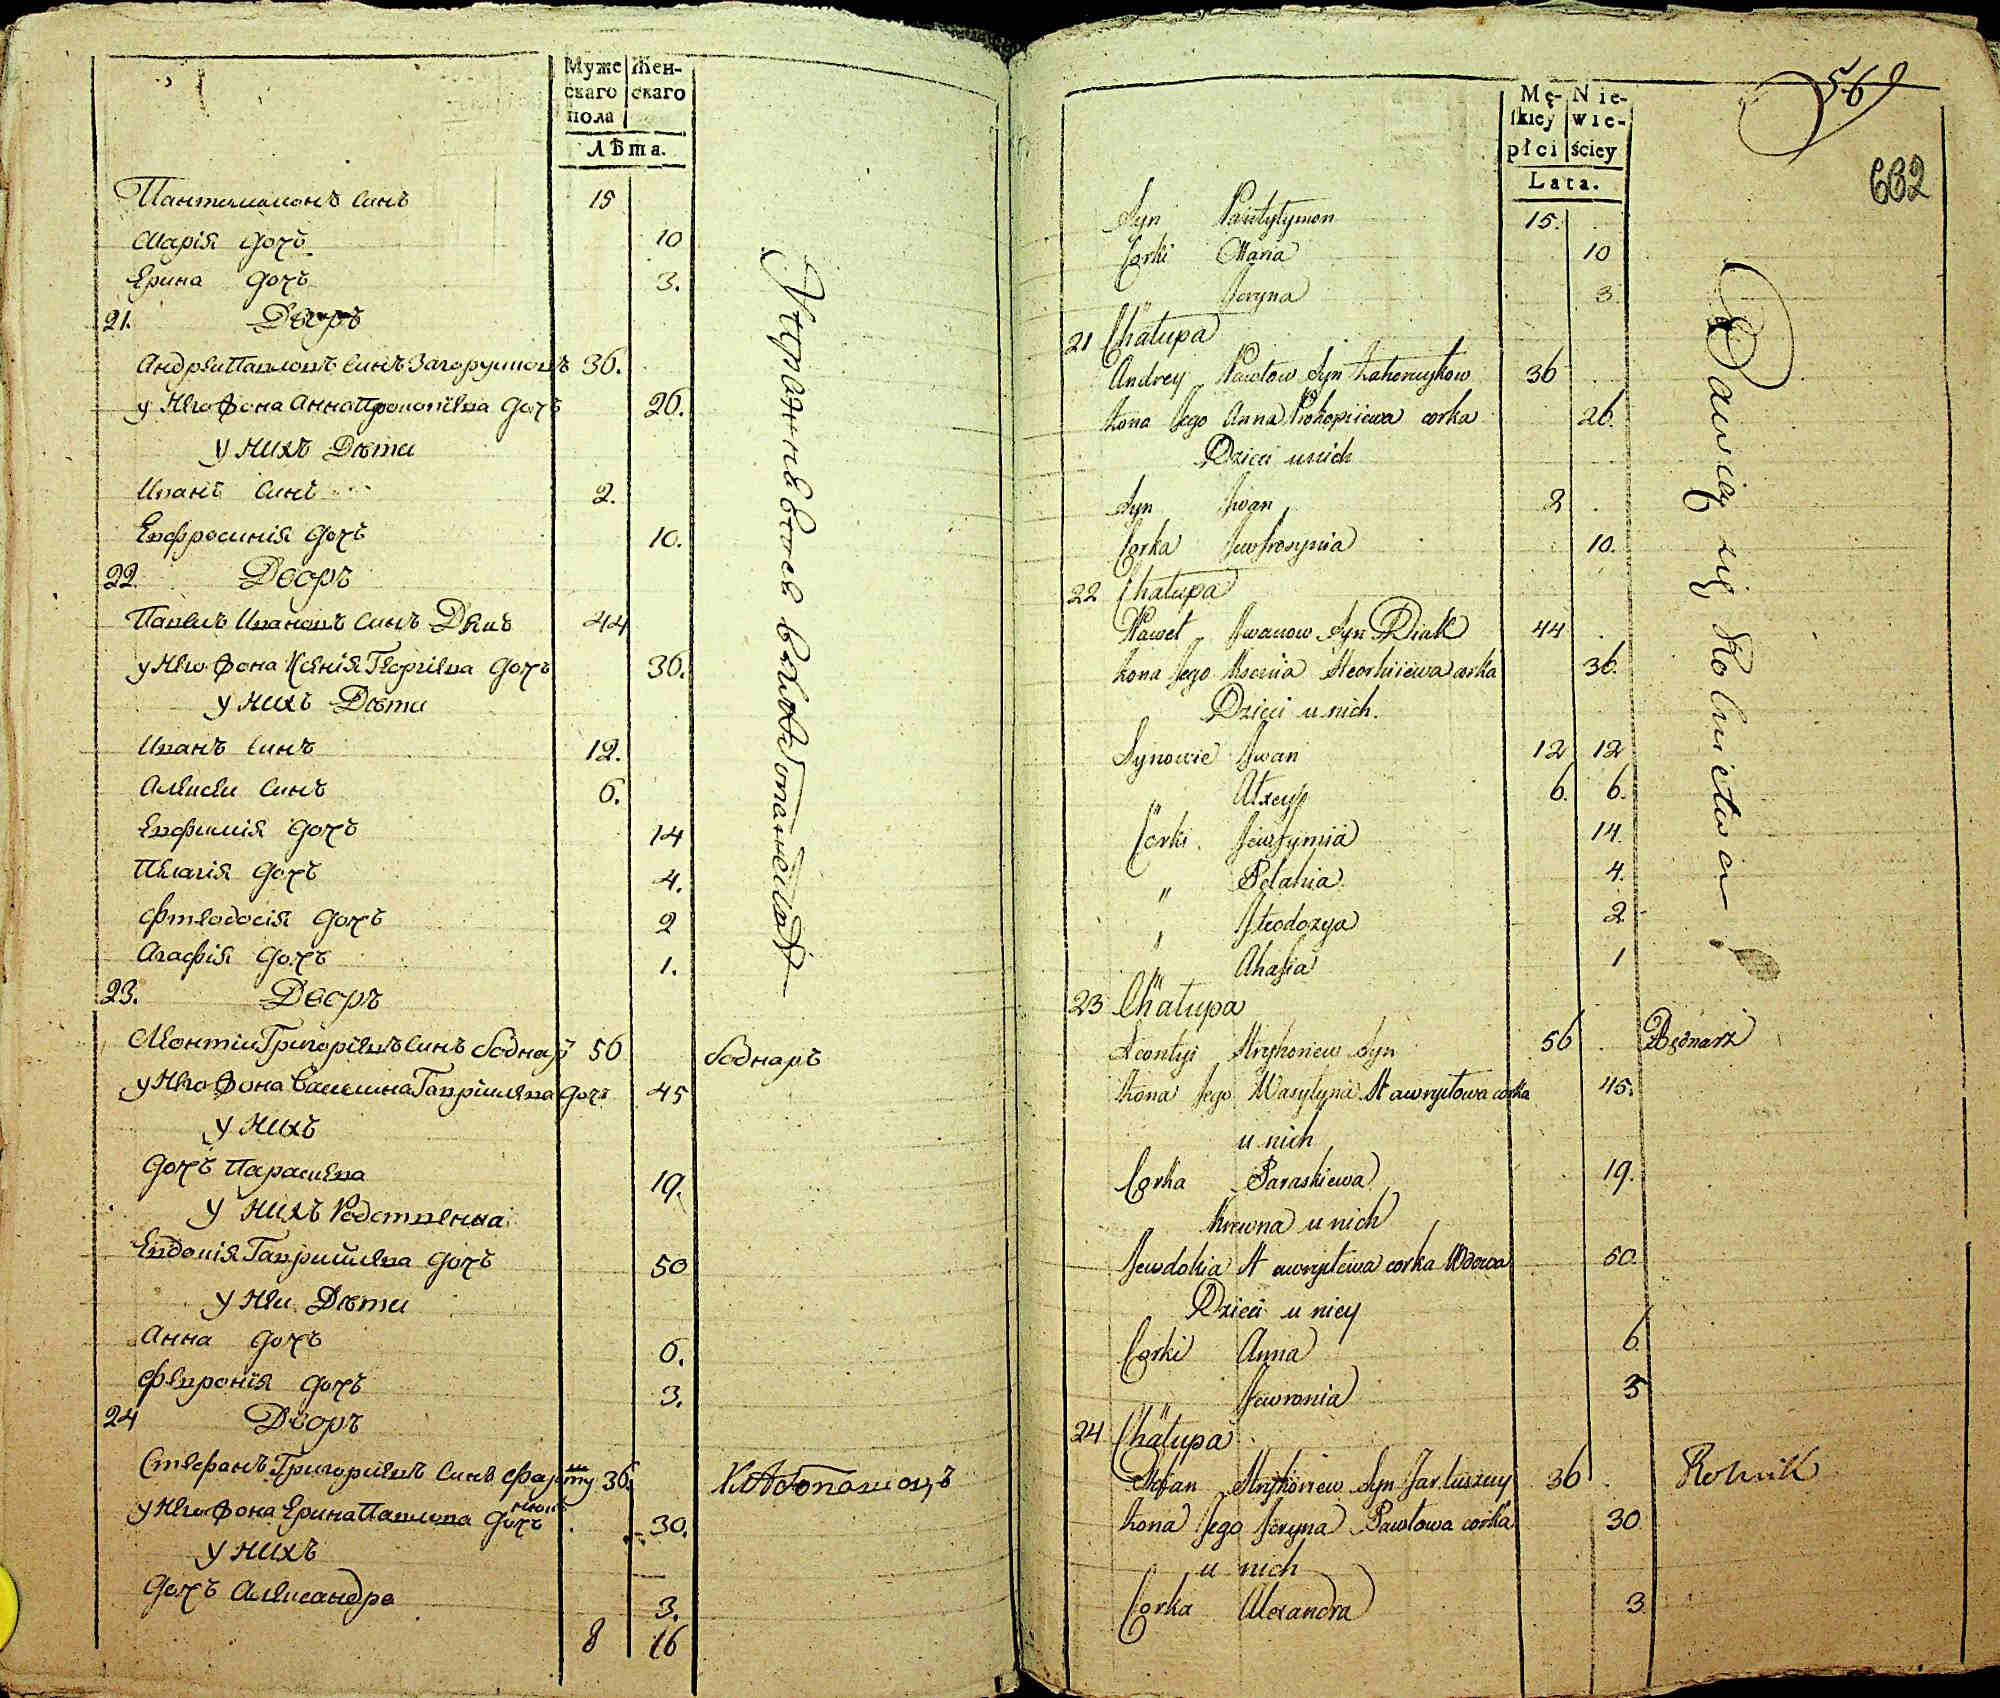 Муже Жен-
скаго скаго
пола
Лѣта.
Пантелимонъ синъ 15
Марія дочъ 10
Ерина дочъ 3.
21. Дворъ
Андрей Павловъ синъ 36.
у него жона Анна Прокопіева дочъ 26.
у нихъ Дѣти
Иванъ синъ 2.
Евфросинія дочъ 10.
22. Дворъ
Павелъ Ивановъ синъ Дякъ 44
у него жона Ксенія Георгіева дочъ 36.
у нихъ Дѣти
Иванъ синъ 12.
Алексей синъ 6.
Евфимія дочъ 14
Пелагія дочъ 4.
Фтеодосія дочъ 2
Агафія дочъ 1.
Упражняются въ хлебопашестве
23. Дворъ
Леонтій Григоріевъ синъ боднаръ 56 боднаръ
у него жона Василина Гавріилева дочъ 45
у нихъ
дочъ Параскева 19.
у нихъ Родственна
Евдокія Гавріилева дочъ 50
у ней Дѣти
Анна дочъ 6.
Февронія дочъ 3.
24 Дворъ
Стефанъ Григориевъ синъ 36. Хлѣбопашецъ
у него жона Ерина Павлова дочъ 30.
у нихъ
дочъ Александра 3.
8 16
569
662
Mę- Nie-
skiey wie-
płci ściey
Lata.
Syn Pantylymon 15.
Corki Maria 10
Jeryna 3
21 Chałupa
Andrey Pawłow Syn Zahoruykow 36
Żona Jego Anna Prokopiiewa corka 26.
Dzieci u nich
Syn Iwan 2
Corka Jewfrosynia 10.
22 Chałupa
Paweł Iwanow Syn Diak 44
Żona Jego Ksenia Heorhiiewa corka 36.
Dzieci u nich.
Synowie Iwan 12 12
" Alxey 6. 6.
Corki Jewfymia 14.
" Pelahia 4.
" Fteodozya 2
" Ahafia 1
Bawią się Rolnictwem
23 Chałupa
Leontyi Hryhoriew Syn 56 Bednarz
Żona Jego Wasylyna Hawryłowa corka 45.
u nich
Corka Paraskiewa 19.
Krewna u nich
Jewdokia Hawryłewa corka Wdowa 50.
Dzieci u niey
Corki Anna 6
Fewronia 3
24 Chałupa
Stefan Hryhoriew Syn 36 Rolnik
Żona Jego Jeryna Pawłowa corka 30
u nich
Corka Alexandra 3